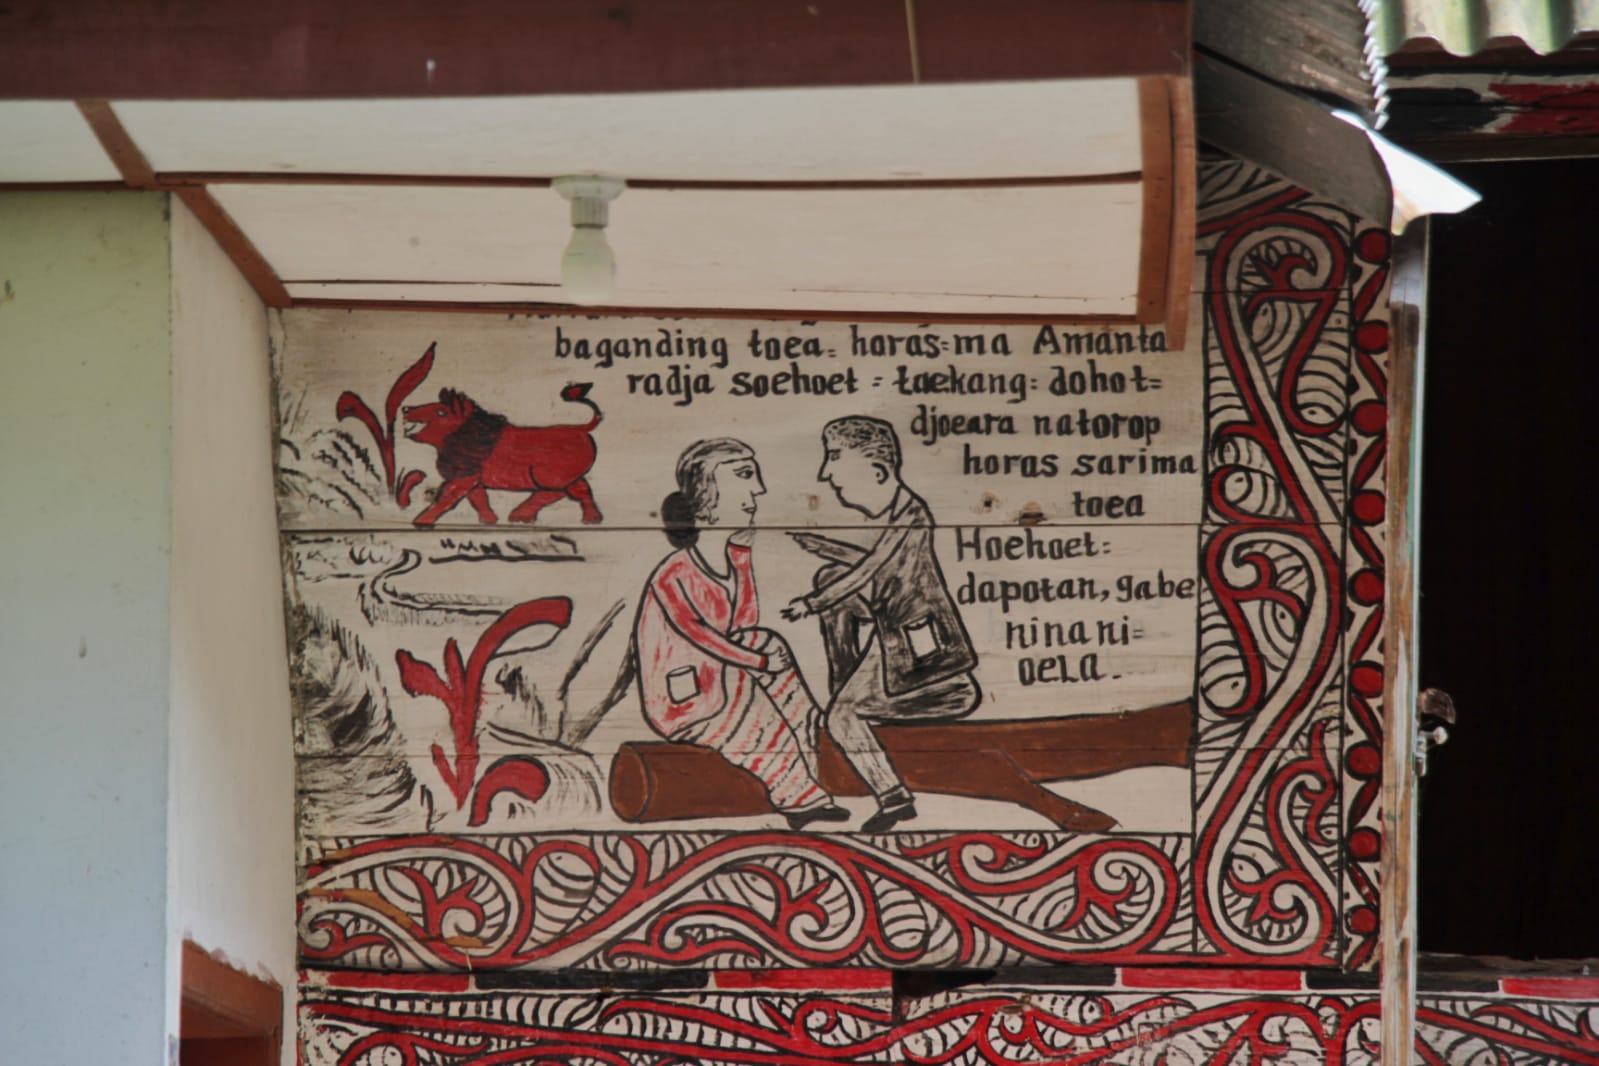 baganding toea= horas=ma Amanta
radja soehoet = toekang= dohot=
djoeara natorop
horas sarima
toea
Hoehoet=
dapotan, gabe
ninani=
oela.